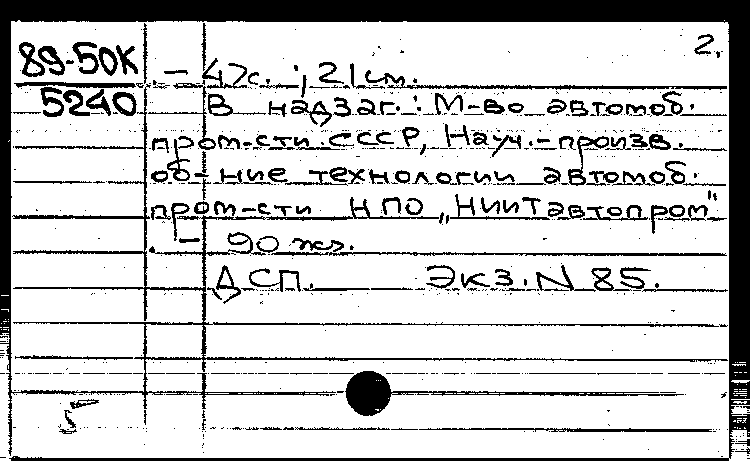 2.
89-50К
5240
.– 47с. ; 21 см.
В надзаг.: М-во автомоб.
пром-сти СССР, Науч.-произв.
об-ние технологии автомоб.
пром-сти НПО „НИИТавтопром"
.– 90 экз.
ДСП. Экз. N 85.
5